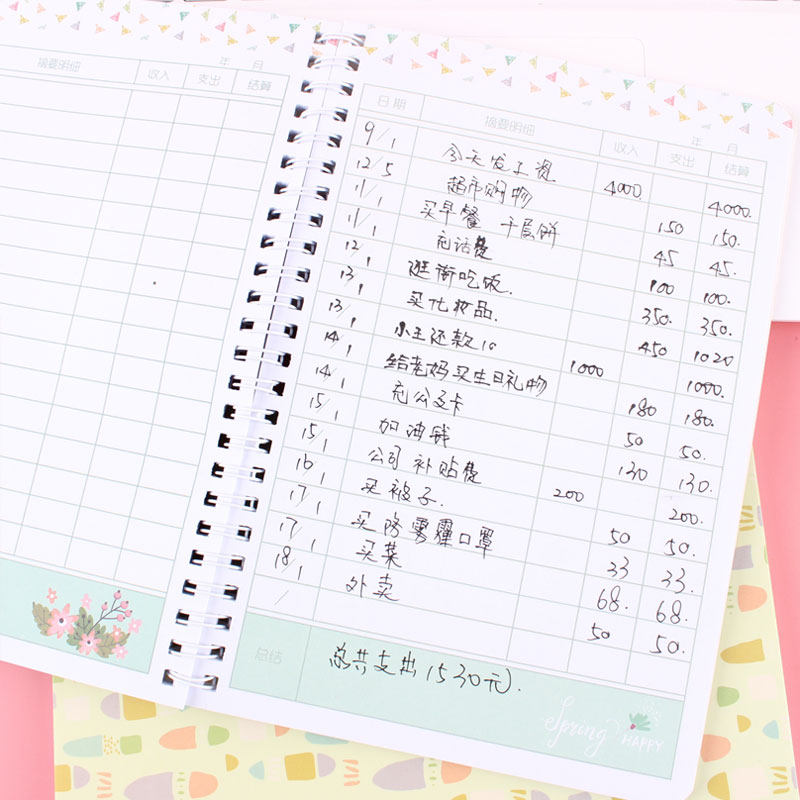 年 月
摘要明细 收入 支出 结算
年 月
日期 摘要明细 收入 支出 结算
9/1 今天发工资 4000 4000.
12/5 超市购物 150 150.
11/1 买早餐 千层饼 45 45.
11/1 充话费 100 100.
12/1 逛街吃饭. 350. 350.
13/1 买化妆品. 450 1020
13/1 小王还款10 1000 1000.
14/1 给老妈买生日礼物 180 180.
14/1 充公交卡 50 50.
15/1 加油钱 130 130.
15/1 公司补贴费 200 200.
16/1 买被子. 50 50.
17/1 买防雾霾口罩 33 33.
17/1 买菜 68. 68.
18/1 外卖 50 50.
/
总结 总共支出1530元.
Spring
HAPPY